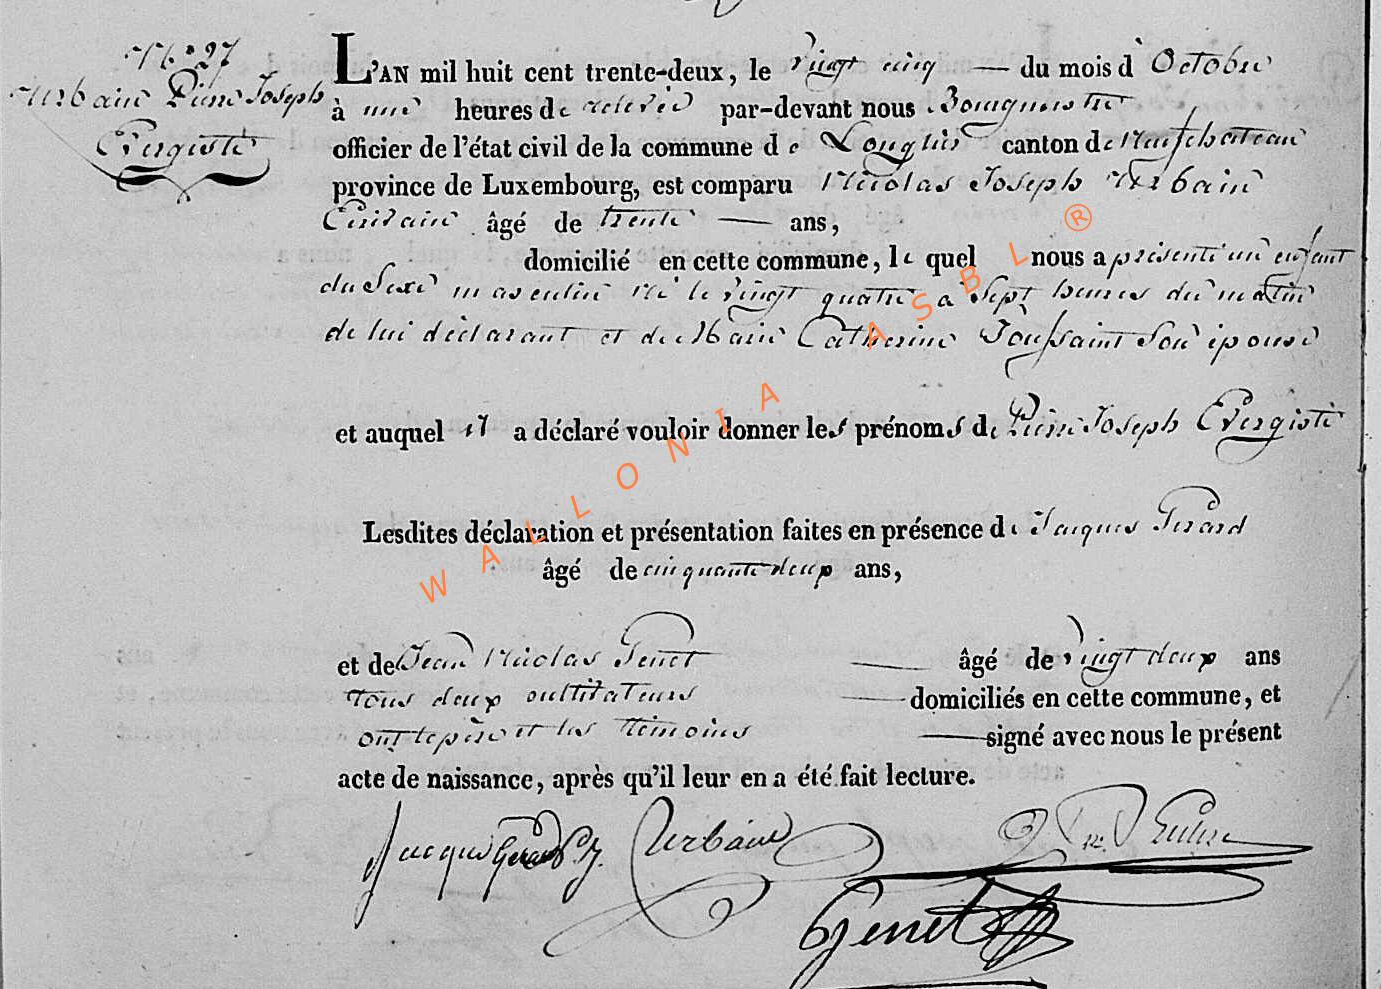 N.° 27
Urbain Pierre Joseph
Evergiste
L'AN mil huit cent trente-deux, le vingt cinq du mois d'Octobre
à une heures de relevée par-devant nous Bourgmestre
officier de l'état civil de la commune de Longlier canton de Neufchateau
province de Luxembourg, est comparu Nicolas Joseph Urbain
âgé de trente ans,
domicilié en cette commune, le quel nous a présenté un enfant
du Sexe masculin né le vingt quatre à Sept heures du matin
de lui déclarant et de Marie Catherine Toussaint Son épouse
et auquel il a déclaré vouloir donner les prénoms de Pierre Joseph Evergiste
Lesdites déclaration et présentation faites en présence de Jacques Gérard
âgé de cinquante deux ans,
et de Jean Nicolas Genet âgé de vingt deux ans
tous deux cultivateurs domiciliés en cette commune, et
ont le père et les témoins signé avec nous le présent
acte de naissance, après qu'il leur en a été fait lecture.
Jacque Gerard Urbain
Genet
WALLONIA ASBL ®